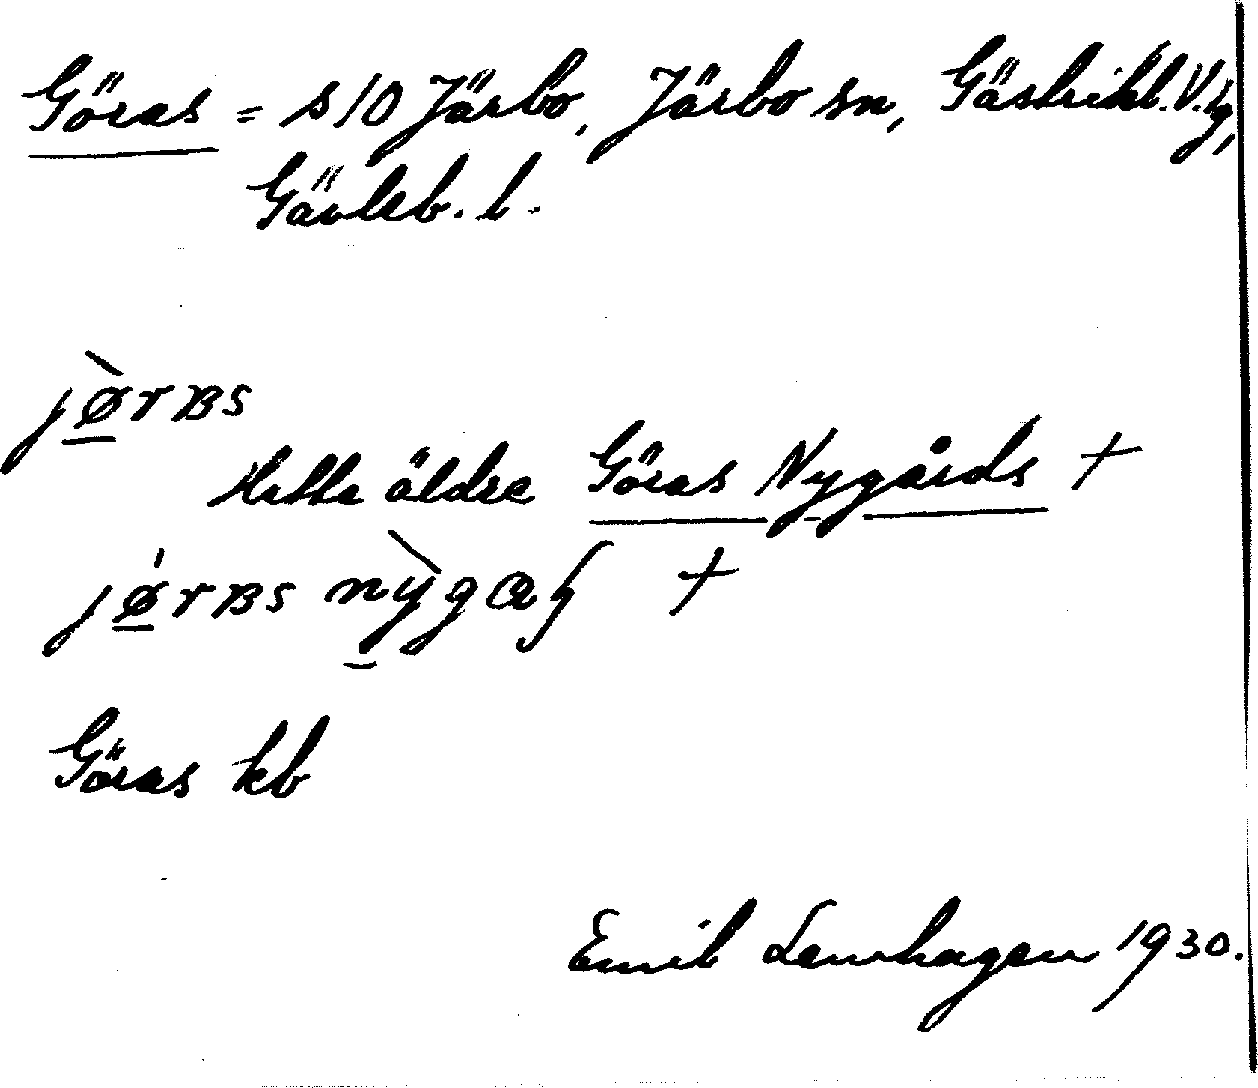 Göras = s/o Järbo, Järbo sn, Gästrikl. V. tg,
Gävleb. l.
jø̱̀rʙs
Hette äldre Göras Nygårds +
jǿ̱rʙs +
Göras kb
Emil Lenhagen 1930.